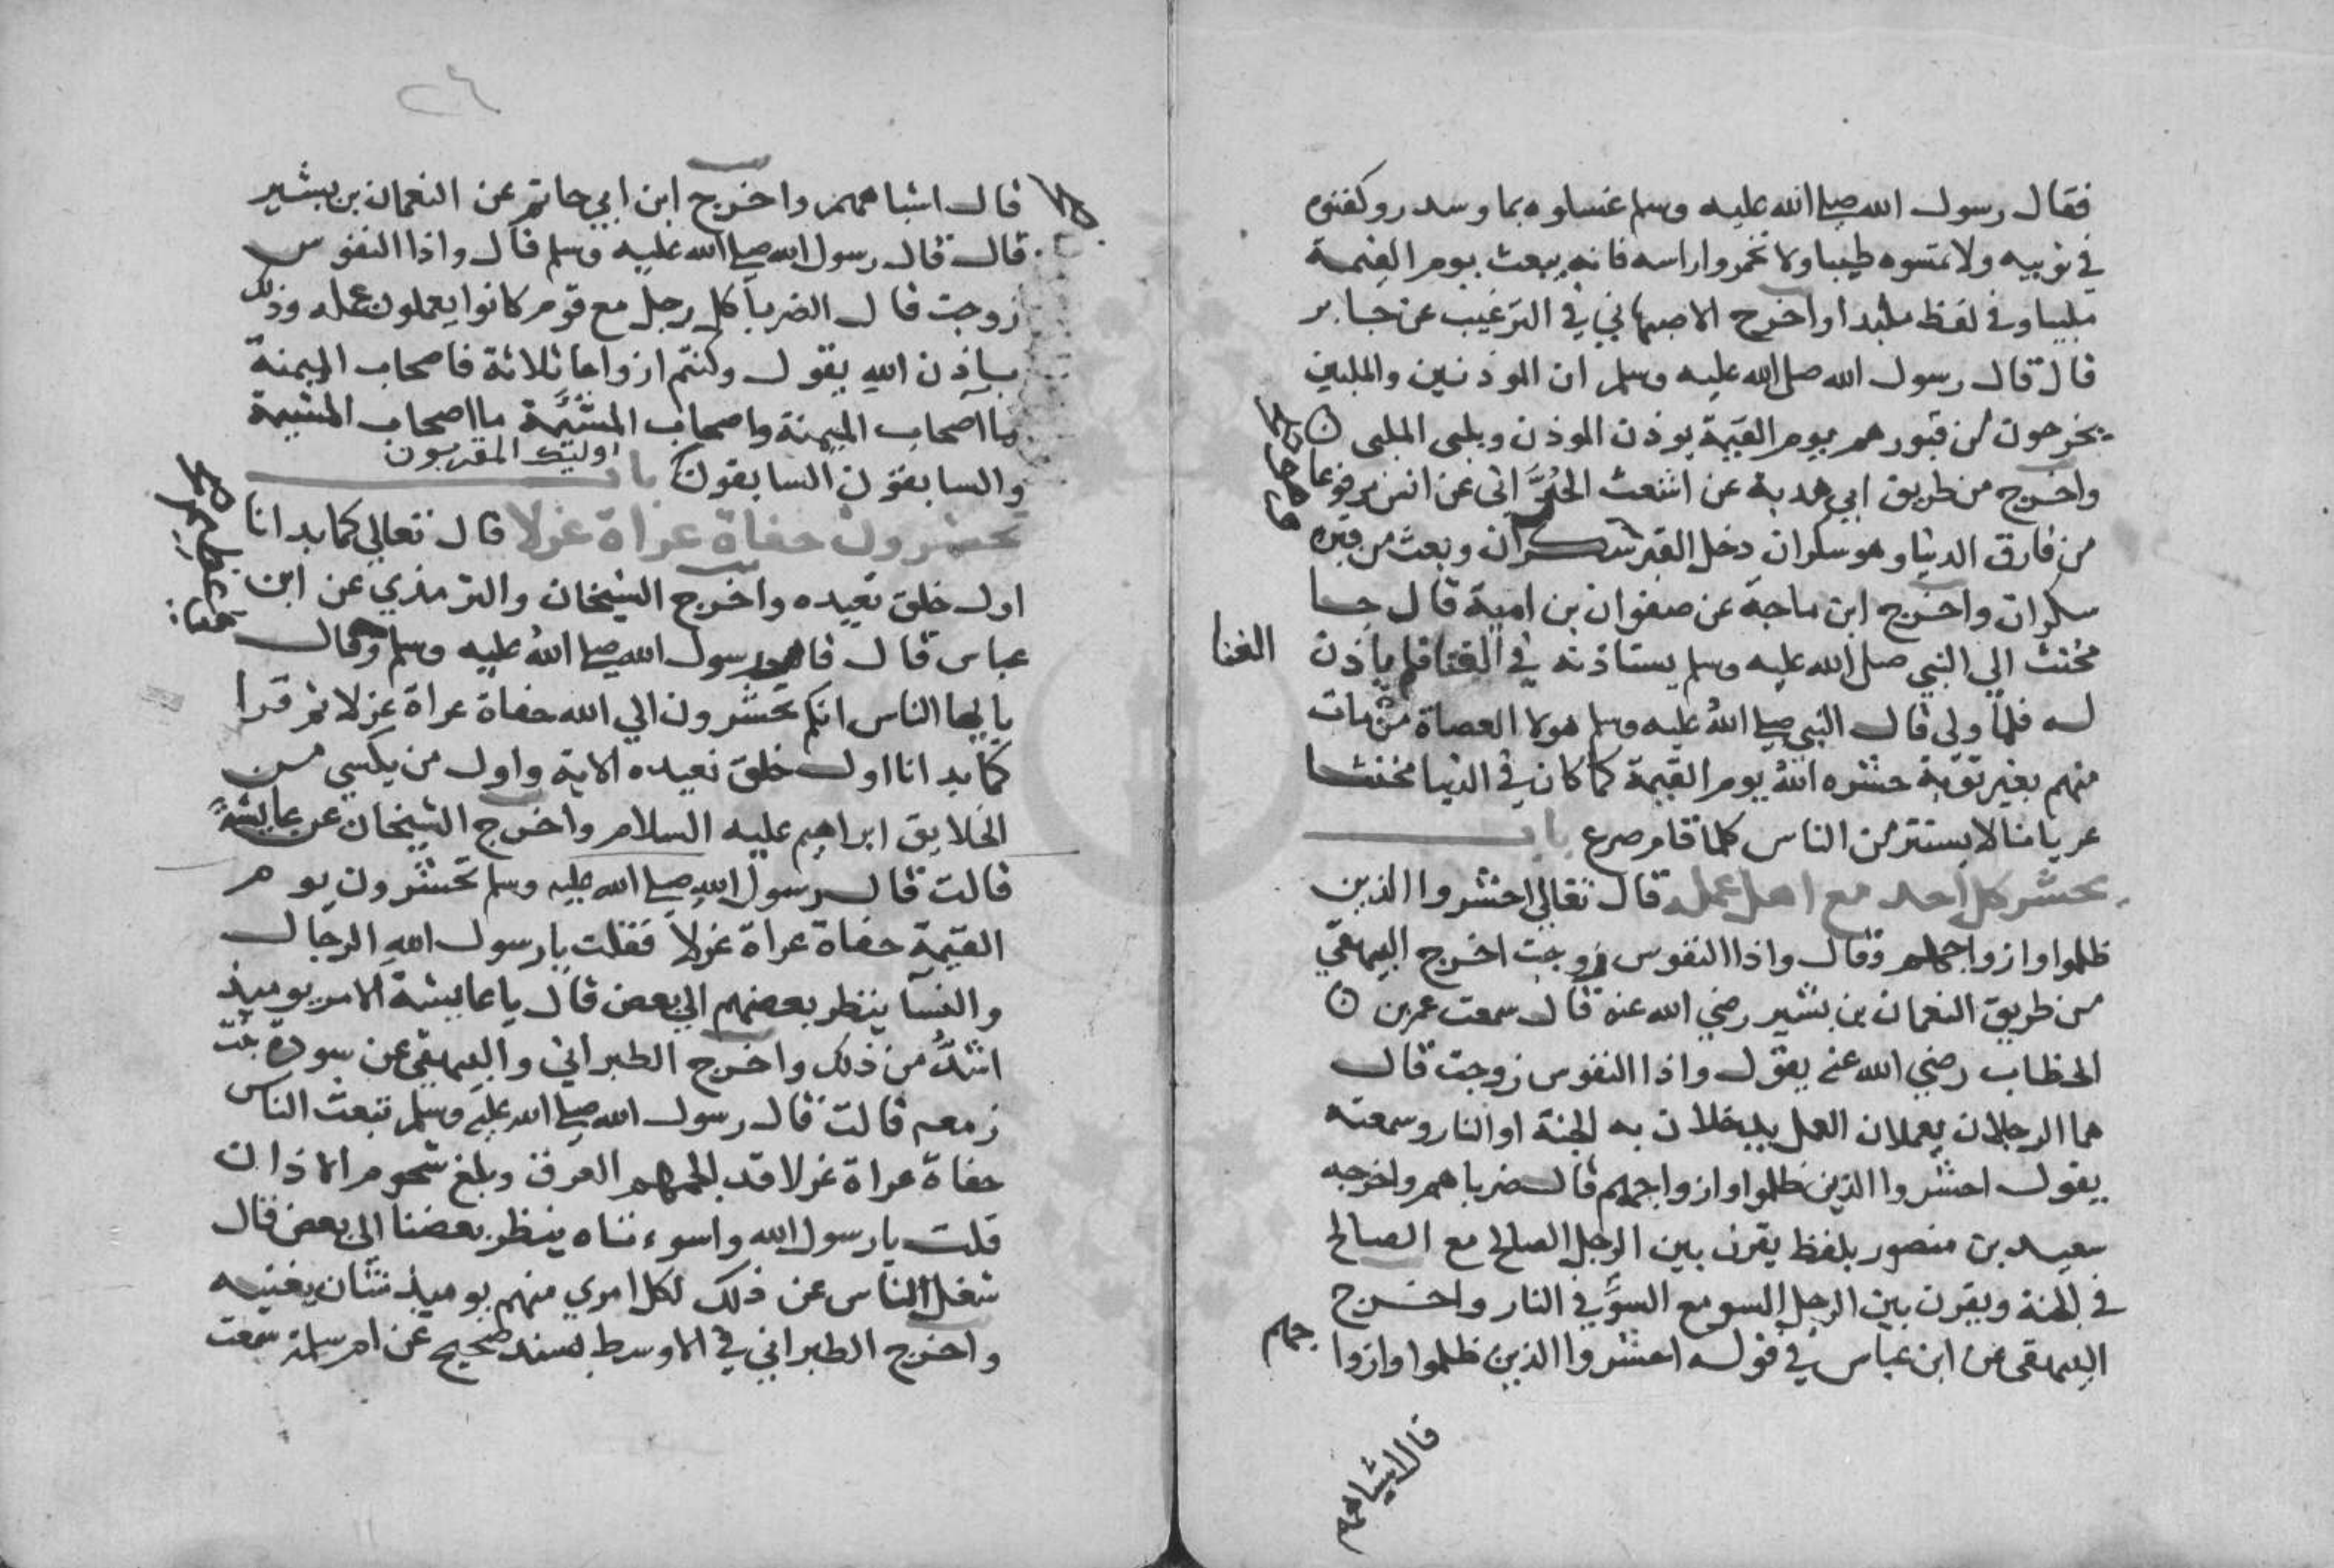 فقال رسول الله صلى الله عليه وسلم غسلوه بما وسدر وكفنوه
في ثوبيه ولا تمسوه طيبا ولا تخمروا راسه فانه يبعث يوم القيمة
ملبيا وفي لفظ ملبدا واخرج الاصبهاني في الترغيب عن جابر
قال قال رسول الله صلى الله عليه وسلم ان الموذنين والملبين
يخرجون من قبورهم يوم القيمة يوذن الموذن ويلبى الملبى
واخرج من طريق ابي هدبة عن اشعث الحُدَّانى عن انس مرفوعا
من فارق الدنيا وهو سكران دخل القبر سكران وبعث من قبره
سكران واخرج ابن ماجة عن صفوان بن امية قال جا
مخنث الى النبي صلى الله عليه وسلم يستاذنه في الغنا فلم ياذن
الغنا
له فلما ولى قال النبي صلى الله عليه وسلم هولا العصاة من مات
منهم بغير توبة حشره الله يوم القيمة كما كان في الدنيا مخنثا
عريانا لا يستتر من الناس كلما قام صرع باب
يحشر كل احد مع اهل عمله قال تعالى احشروا الذين
ظلموا وازواجهم وقال واذا النفوس زوجت اخرج البيهقي
من طريق النعمان بن بشير رضي الله عنه قال سمعت عمر بن
الخطاب رضي الله عنه يقول واذا النفوس زوجت قال
هما الرجلان يعملان العمل يدخلان به الجنة او النار وسمعته
يقول احشروا الذين ظلموا وازواجهم قال ضرباهم واخرجه
سعيد بن منصور بلفظ يقرن بين الرجل الصالح مع الصالح
في الجنة ويقرن بين الرجل السو مع السوِّ في النار واخرج
البيهقى عن ابن عباس في قوله احشروا الذين ظلموا وازوا
جهم
قال اشباههم
٢٦
قال اشباههم واخرج ابن ابي حاتم عن النعمان بن بشير
قال قال رسول الله صلى الله عليه وسلم قال واذا النفوس
زوجت قال الضربا كل رجل مع قوم كانوا يعملون عمله وذلك
باذن الله يقول وكنتم ازواجا ثلاثة فاصحاب الميمنة
ما اصحاب الميمنة واصحاب المشئمة ما اصحاب المشيمة
والسابقون السابقون اوليك المقربون باب
تحشرون حفاة عراة غرلا قال تعالي كما بدانا
اول خلق نعيده واخرج الشيخان والترمذي عن ابن
عباس قال قام رسول الله صلى الله عليه وسلم وقال
يا ايها الناس انكم تحشرون الي الله حفاة عراة غرلا ثم قرا
كما بدانا اول خلق نعيده الاية واول من يكسي من
الخلايق ابراهيم عليه السلام واخرج الشيخان عن عايشة
قالت قال رسول الله صلى الله عليه وسلم تحشرون يوم
القيمة حفاة عراة غرلا فقلت يا رسول الله الرجال
والنسا ينظر بعضهم الى بعض قال يا عايشة الامر يوميذ
اشدُّ من ذلك واخرج الطبراني والبيهقى عن سودة بنت
زمعه قالت قال رسول الله صلى الله عليه وسلم تبعث الناس
حفاة عراة غرلا قد الجمهم العرق وبلغ شحوم الاذان
قلت يا رسول الله واسوءتاه ينظر بعضنا الى بعض قال
شغل الناس عن ذلك لكل امري منهم يوميذ شان يغنيه
واخرج الطبراني في الاوسط بسند صحيح عن ام سلمة سمعت